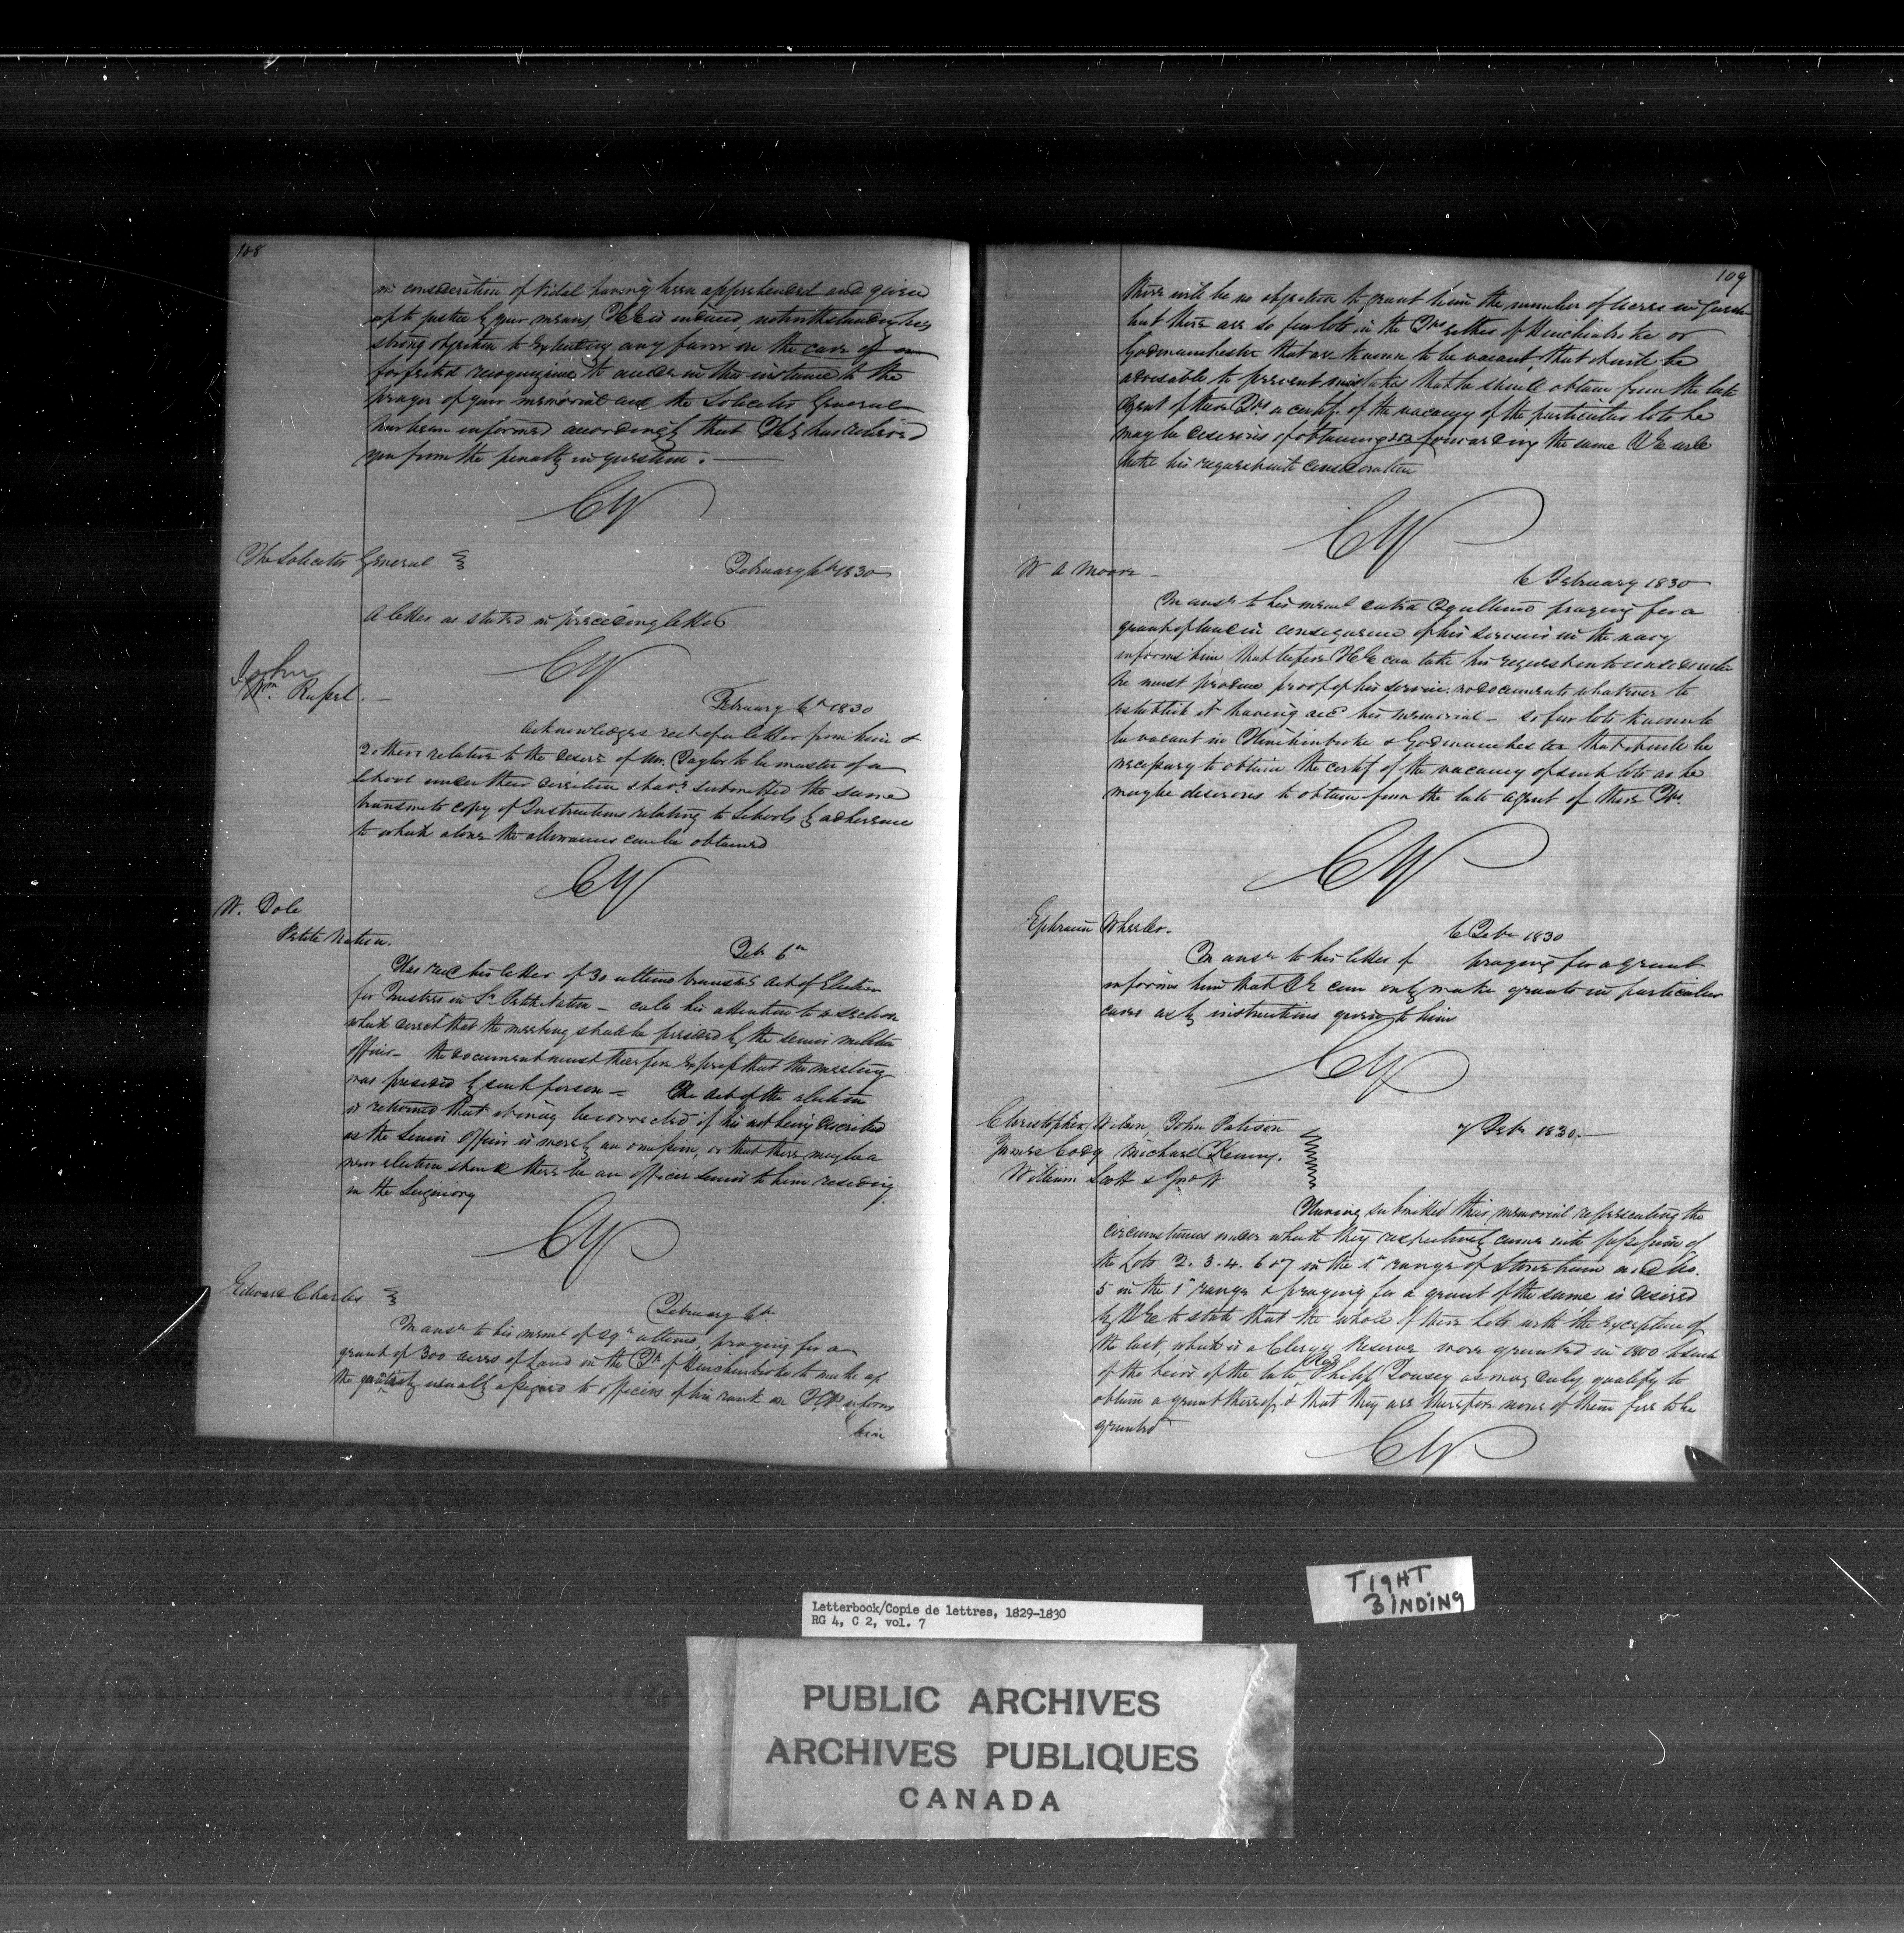 108
in consideration of Vidal having been apprehended and given
up to justice by your means His Ex is induced, notwithstanding his
strong objection to extending any favor in the case of a
forfeited recognizance to accede in this instance to the
prayer of your memorial and the Solicitor General
has been informed accordingly that His Ex has relieved
you from the penalty in question. —
CY
The Solicitor General
February 6th 1830
A letter as stated in preceding letter
CY
John
Wm Rufsel. —
February 6th 1830
Acknowledges rect of a letter from him &
2 others relative to the desire of Mr. Taylor to be master of a
School under their direction & havg submitted the same
transmits copy of Instructions relating to Schools by adherence
to which alone the allowances can be obtained
CY
W. Dole
Petite Nation.
Feb 6th
Has recd his letter of 30 ultimo transmg Act of Election
for Trustees in Sr Petite Nation — calls his attention to a section
which directs that the meeting shall be presided by the senior militia
officer — the document must therefore exprefs that the meeting
was presided by such person — The Act of the election
is returned that it may be corrected if his not being described
as the Senior Officer is merely an omifsion, or that there may be a
new election should there be an officer senior to him residing
in the Seigniory
CY
Edward Charles
February 6th
In ansr to his meml of 29th ultimo, praying for a
grant of 300 acres of Land in the Tp of Hinchinbroke to make up
the quantity usually afsigned to officers of his rank on H.P. informs
him
109
there will be no objection to grant him the number of acres in question
but there are so few lots in the Tps either of Hinchinbroke or
Godmanchester that are known to be vacant, that it will be
advisable to prevent mistakes that he should obtain from the late
Agent of these Tps a certif. of the vacancy of the particular lots he
may be desirous of obtaining & on forwarding the same His Ex will
take his request into consideration
CY
W A Moore —
6 February 1830
In ansr to his meml dated 29 ultimo praying for a
grant of land in consequence of his services in the navy
informs him that before His Ex can take his request into consideration
he must produce proof of his service. no documents whatever to
establish it having accd his memorial — so few lots known to
be vacant in Hinchinbroke & Godmanchester that it will be
necefsary to obtain the certif of the vacancy of such lots as he
may be desirous to obtain from the late agent of these Tps.
CY
Ephraim Wheeler.
6 Feby 1830
In ansr to his letter of praying for a grant
informs him that His Ex can only make grants in particular
cases as by instructions given to him
CY
Christopher Wilson, John Patison
James Cody Michael Kenny.
William Scott & Jno W
7 Feby 1830. —
Having submitted their memorial representing the
circumstances under which they respectively came into pofsefsion of
the Lots 2. 3. 4. 6 & 7 in the 1st range of Stoneham and No.
5 in the 1st range & praying for a grant of the same is desired
by His Ex to state that the whole of these Lots with the exception of
the last, which is a Clergy Reserve were granted in 1800 to such
of the heirs of the late Revd Philip Tousey as may duly qualify to
obtain a grant thereof, & that they are therefore none of them free to be
granted
CY
TIGHT
BINDING
Letterbook/Copie de lettres, 1829-1830
RG 4, C 2, vol. 7
PUBLIC ARCHIVES
ARCHIVES PUBLIQUES
CANADA